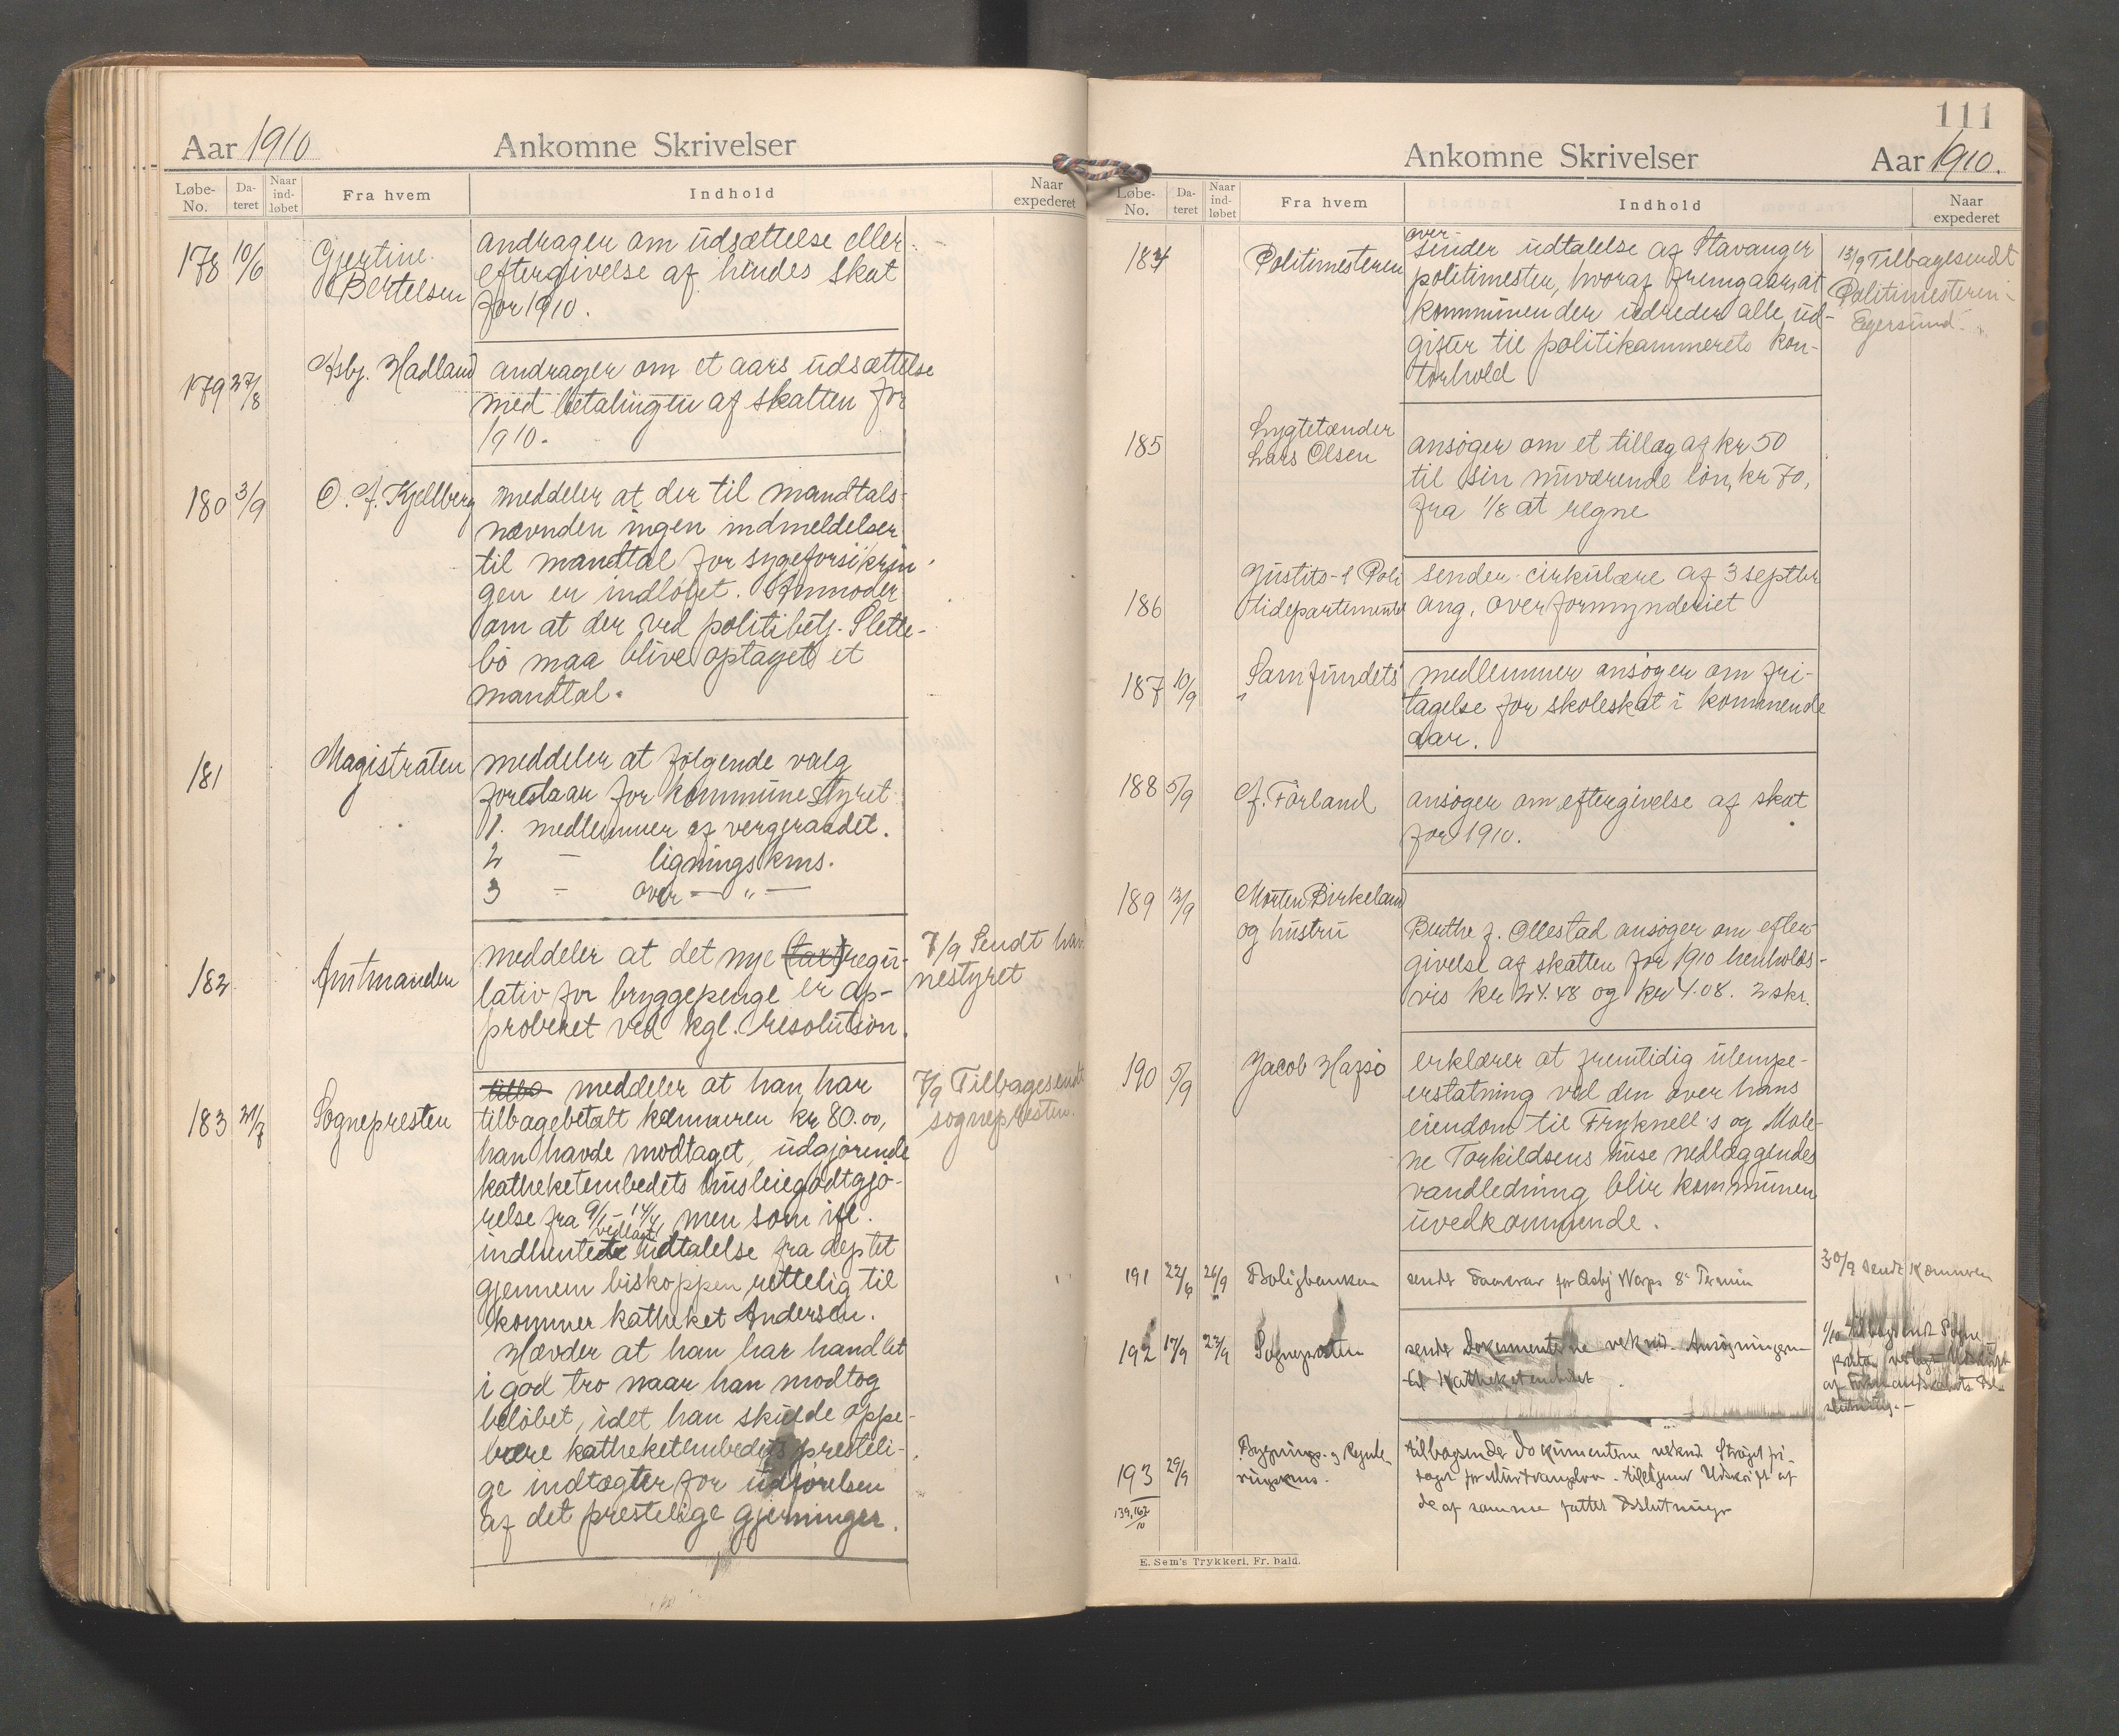 Aar 1910 Ankomne Skrivelser
Løbe-No. Da-teret Naar ind-løbet Fra hvem Indhold Naar expederet
178 10/6 Gjertine Bertelsen andrager om udsættelse eller
eftergivelse af hendes skat
for 1910.
179 27/8 Asbj. Hadland andrager om et aars udsættelse
med betalingen af skatten for
1910.
180 3/9 O. F. Kjellberg meddeler at der til mandtals-
nævnden ingen indmeldelser
til mandtal for sygeforsikrin-
gen er indløbet. Anmoder
om at der ved politibetj. Slette-
bø maa blive optaget et
mandtal.
181 Magistraten meddeler at følgende valg
forestaar for kommunestyret
1. medlemmer af vergeraadet.
2 — ligningskms.
3 — over — " —
182 Amtmanden meddeler at det nye (tax) regu- 7/9 Sendt hav-
lativ for bryggepenge er ap- nestyret
proberet ved kgl. resolution.
183 21/7 Sognepresten tilba meddeler at han har 7/9 Tilbagesendt
tilbagebetalt kæmneren kr 80.00, sognepresten.
han havde modtaget, udgjørende
katheketembedets husleiegodtgjø-
relse fra 9/1 - 14/4, men som ifl.
vedlagt
indhentede udtalelse fra deptet
gjennem biskoppen rettelig til
kommer katheket Andersen.
Hævder at han har handlet
i god tro naar han modtog
beløbet, idet han skulde oppe-
bære katheketembedets presteli-
ge indtægter for udførelsen
af det prestelige gjerninger.
111
Ankomne Skrivelser Aar 1910.
Løbe-No. Da-teret Naar ind-løbet Fra hvem Indhold Naar expederet
over-
184 Politimesteren sender udtalelse af Stavanger 13/9 Tilbagesendt
politimester, hvoraf fremgaar, at Politimesteren i
kommunen der udreder alle ud- Egersund.
gifter til politikammerets kon-
torhold
185 Lygtetænder
Lars Olsen ansøger om et tillæg af kr 50
til sin nuværende løn, kr 70,
fra 1/8 at regne
186 Justits- & Poli sender cirkulære af 3 septbr
tidepartementet ang. overformynderiet
187 10/9 Samfundets medlemmer ansøger om fri-
tagelse for skoleskat i kommende
aar.
188 5/9 F. Førland ansøger om eftergivelse af skat
for 1910.
189 12/9 Morten Birkeland
og hustru Berthe f. Ollestad ansøger om efter-
givelse af skatten for 1910 henholds-
vis kr 24.48 og kr 4.08. 2 skr.
190 5/9 Jacob Hafsø erklærer at fremtidig ulempe-
erstatning ved den over hans
eiendom til Fryknell's og Male-
ne Torkildsens huse nedlæggendes
vandledning blir kommunen
uvedkommende.
191 22/6 26/9 Boligbanken sender for Asbj 8de Termin 30/9 sendt Kæmneren
192 17/9 23/9 Sognepresten sender Dokumenterne vedkd. Ansøgningen 1/10 tilbagesendt Sogne
til Katheketembedet presten vedlagt Udskrift
af Formandskabets Be-
slutning.
193 29/9 Bygnings- og Regule-
ringskms. tilbagesender Dokumenterne vedkd. Strøget fri-
taget for Murtvangsloven tilligemed Udskrift af
de af samme fattede Beslutninger
139, 162/10
E. Sem's Trykkeri, Fr. hald.